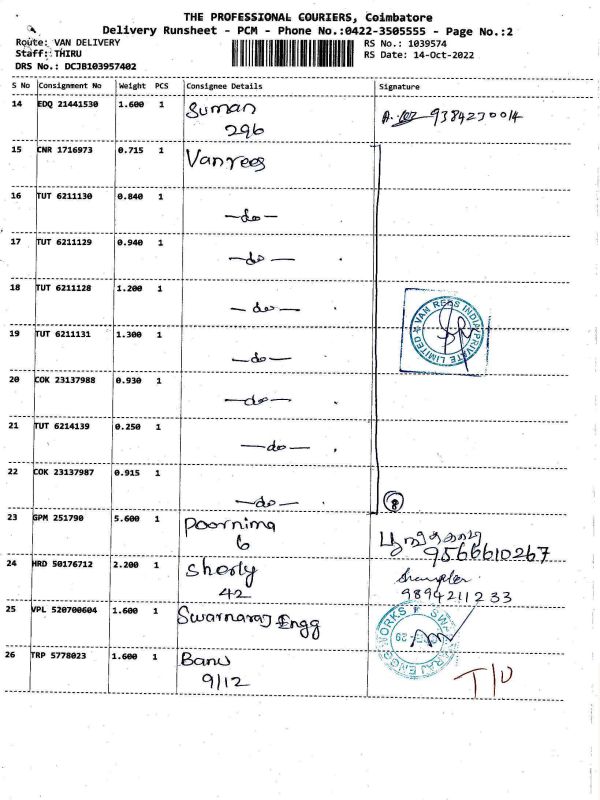 THE PROFESSIONAL COURIERS, Coimbatore
Delivery Runsheet - PCM - Phone No.:0422-3505555 - Page No.:2
Route: VAN DELIVERY
Staff: THIRU
DRS No.: DCJB103957402
RS No.: 1039574
RS Date: 14-Oct-2022
S No Consignment No Weight PCS Consignee Details Signature
14 EDQ 21441530 1.600 1 Suman
296
9384230014
15 CNR 1716973 0.715 1 Vanrees
16 TUT 6211130 0.840 1 -do-
17 TUT 6211129 0.940 1 -do-
18 TUT 6211128 1.200 1 -do-
VAN REES INDIA PRIVATE LIMITED
19 TUT 6211131 1.300 1 -do-
20 COK 23137988 0.930 1 -do-
21 TUT 6214139 0.250 1 -do-
22 COK 23137987 0.915 1 -do-
8
23 GPM 251790 5.600 1 Poornima
6
9566610267
24 HRD 50176712 2.200 1 Sherly
42
9894211233
25 VPL 520700604 1.600 1 Swarnaraj Engg
26 TRP 5778023 1.600 1 Banu
9/12